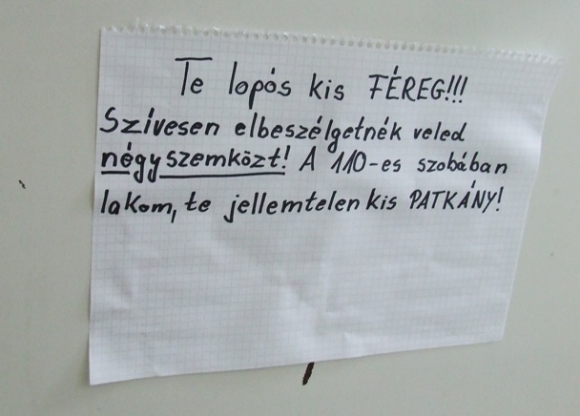 Te lopós kis FÉREG!!!
Szívesen elbeszélgetnék veled
négyszemközt! A 110-es szobában
lakom, te jellemtelen kis PATKÁNY!